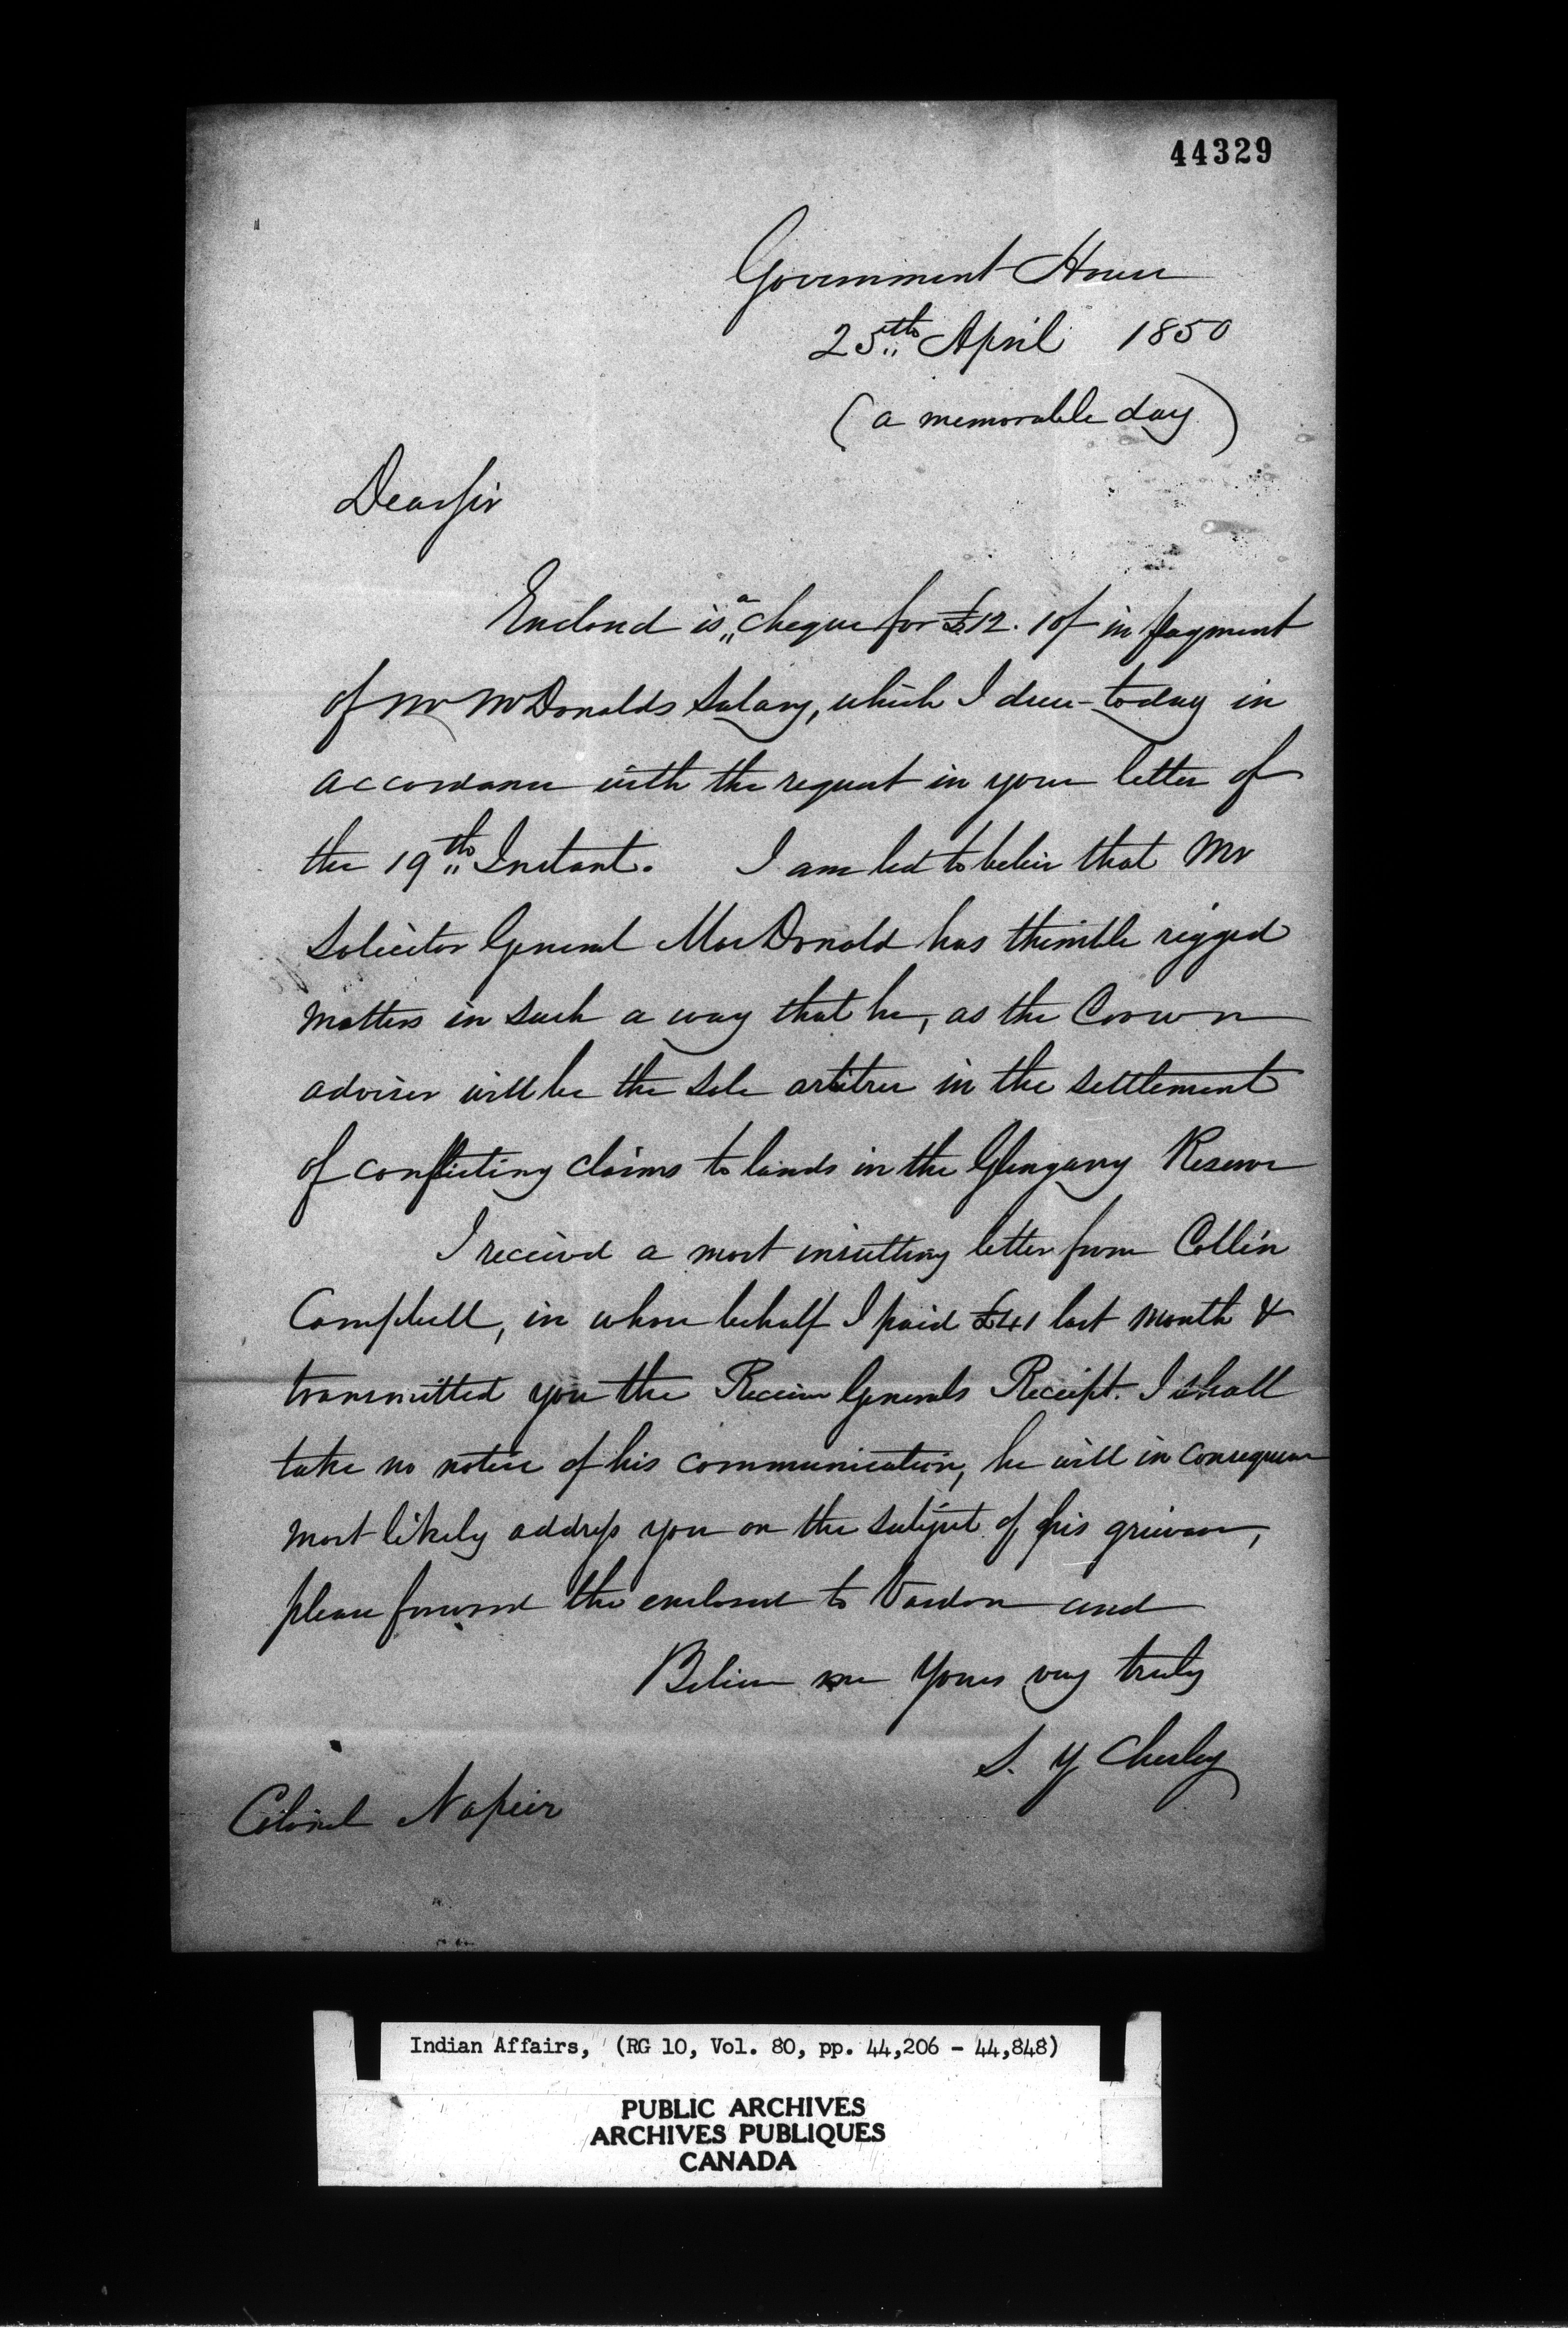 44329
Government House
25th April 1850
(a memorable day)
Dear Sir
Enclosed is a cheque for £12.10/ in payment
of Mr McDonalds Salary, which I drew today in
accordance with the request in your letter of
the 19th Instant. I am led to believe that Mr
Solicitor General MacDonald has thimble rigged
matters in such a way that he, as the Crown
adviser will be the sole arbitrer in the settlement
of conflicting claims to lands in the Glengarry Reserve
I received a most insulting letter from Collin
Campbell, in whose behalf I paid £41 last month &
transmitted you the Receiver Generals Receipt. I shall
take no notice of his communication, he will in consequence
most likely address you on the subject of his grievance,
please forward the enclosed to Vardon and
Believe me Yours very truly
S. Y Chesley
Colonel Napier
Indian Affairs, (RG 10, Vol. 80, pp. 44,206 - 44,848)
PUBLIC ARCHIVES
ARCHIVES PUBLIQUES
CANADA